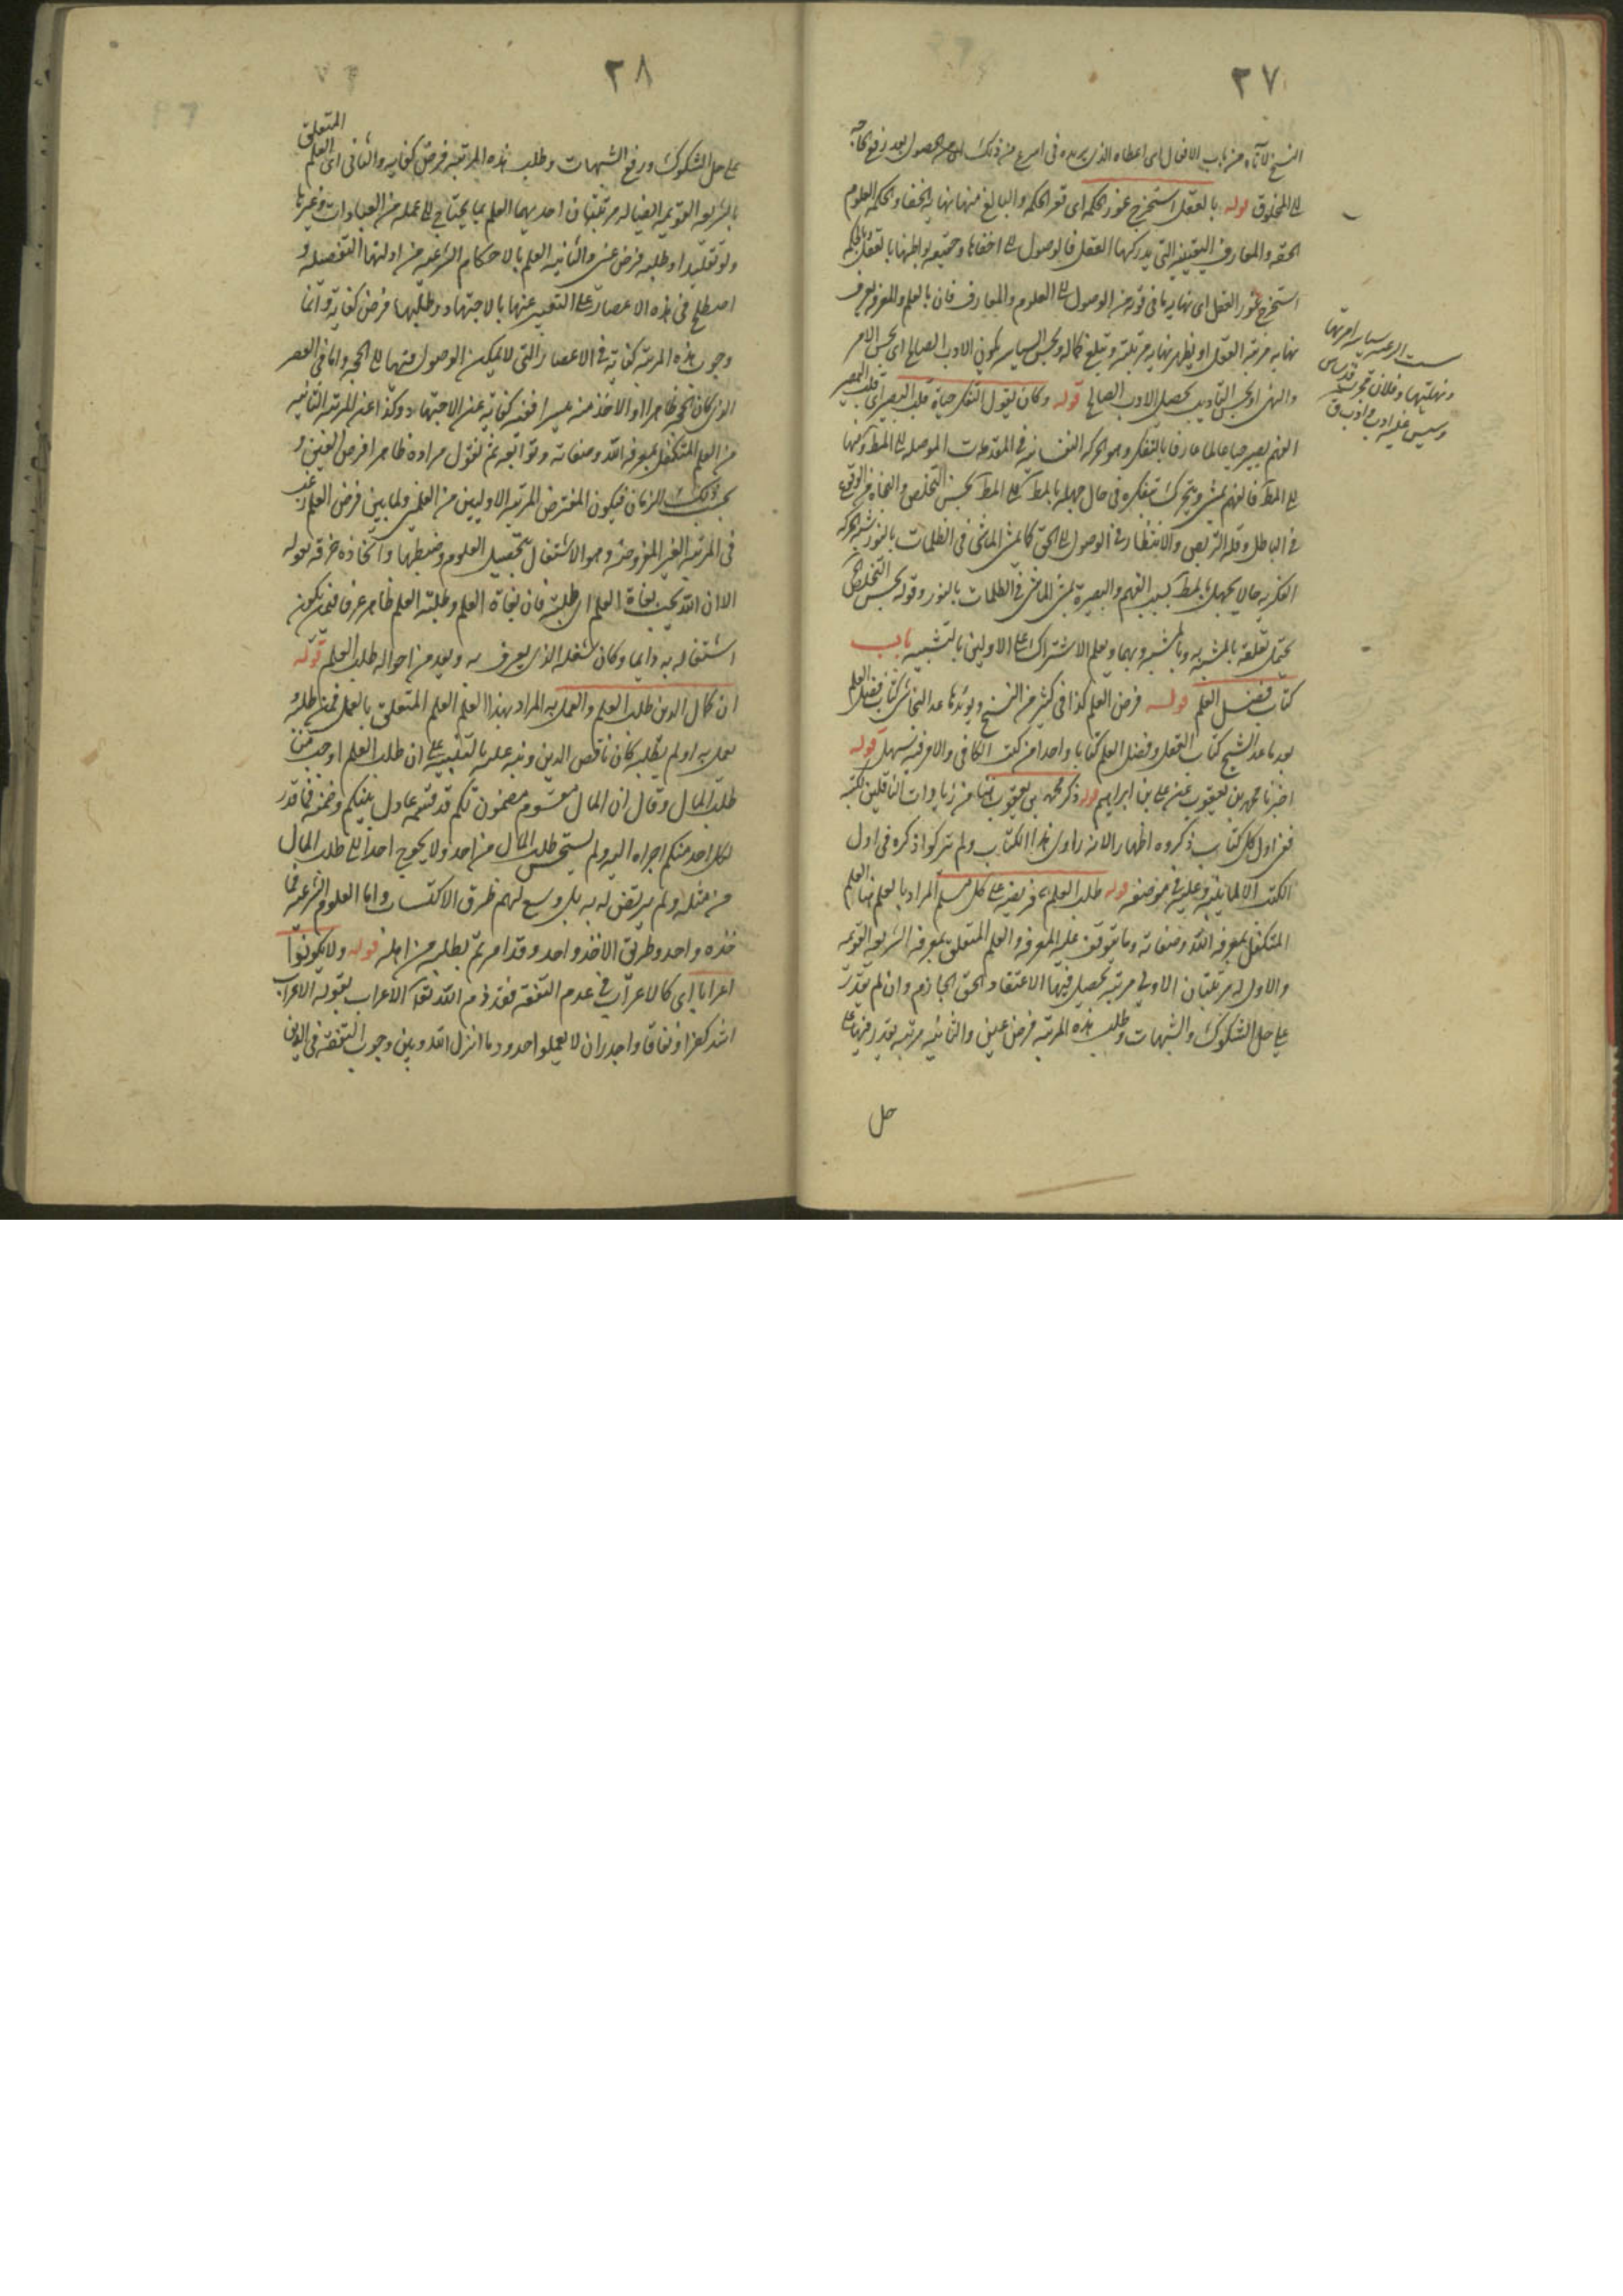 ٢٧
النسخ لآتاه من باب الافعال اى اعطاه الذى يريده فى اسرع من ذلك الحصول بعد رفع الحاجة
الى المخلوق قوله بالعقل استخرج غور الحكمة اى قعر الحكمة والبالغ منها نهاية الخفاء والحكمة العلوم
الحقة والمعارف اليقينية التى يدركها العقل فالوصول الى اخفاها وحقيقة بواطنها بالعقل وبالحكمة
استخرج غور العقل اى نهاية ما فى قوته من الوصول الى العلوم والمعارف فان بالعلم والمعرفة يعرف
نهاية مرتبة العقل او يظهر نهاية مرتبته ويبلغ كماله وبحسن السياسة يكون الادب الصالح اى بحسن الامر
والنهى او بحسن التأديب يحصل الادب الصالح قوله وكان يقول التفكر حياة قلب البصير اى قلب البصير
الفهم يصير حيا عالما عارفا بالتفكر وهو الحركة النفسانية فى المقدمات الموصلة الى المط ومنها
الى المط فالفهم يمشى ويتحرك بتفكره فى حال جهله بالمط الى المط بحسن التخلص والنجاة من الوقوع
فى الباطل وقلة التربص والانتظار فى الوصول الى الحق كما يمشى الماشى فى الظلمات بالنور شبه الحركة
الفكرية حال الجهل بالمط بسبب الفهم والبصيرة بمشى الماشى فى الظلمات بالنور وقوله بحسن التخلص
يحتمل تعلقه بالمشبه به وبالمشبه وبهما ويعلم الاشتراك على الاولين بالتشبيه باب
كتاب فضل العلم قوله فرض العلم كذا فى كثير من النسخ ويؤيدها عد النجاشى كتاب فضل العلم
بعد ما عد الشيخ كتاب العقل وفضل العلم كتابا واحدا من كتب الكافى والامر فيه سهل قوله
اخبرنا محمد بن يعقوب عن على بن ابراهيم قوله ذكر محمد بن يعقوب هنا من زيادات الناقلين لكتبه
ففى اول كل كتاب ذكروه اظهارا لانه راوى هذا الكتاب ولم يتركوا ذكره فى اول
الكتب الا لما ننبه عليه فى موضعه قوله طلب العلم فريضة على كل مسلم المراد بالعلم هنا العلم
المتكفل بمعرفة الله وصفاته وما يتوقف عليه المعرفة والعلم المتعلق بمعرفة الشريعة القويمة
والاول له مرتبتان الاولى مرتبة يحصل فيها الاعتقاد الحق الجازم وان لم يقدر
على حل الشكوك والشبهات وطلب هذه المرتبة فرض عين والثانية مرتبة يقدر فيها على
حل
ونهيتها وفلان مجرب قد ساس
وسيس عليه ادب وادب ق
٢٨
على حل الشكوك ورفع الشبهات وطلب هذه المرتبة فرض كفاية والثانى اى العلم المتعلق
بالشريعة القويمة ايضا له مرتبتان احديهما العلم بما يحتاج الى عمله من العبادات وغيرها
ولو تقليدا وطلبه فرض عين والثانية العلم بالاحكام الشرعية من ادلتها التفصيلية و
اصطلح فى هذه الاعصار على التعبير عنها بالاجتهاد وطلبها فرض كفاية وانما
وجوب هذه المرتبة كفاية فى الاعصار التى لا يمكن الوصول فيها الى الحجة واما فى العصر
الذى كان الحجة ظاهرا والاخذ منه ميسرا ففيه كفاية عن الاجتهاد وكذا عن المرتبة الثانية
من العلم المتكفل بمعرفة الله وصفاته وتوابعه ثم نقول مراده ظاهرا فرض العين و
بحسب ذلك الزمان فيكون المفترض المرتبة الاوليين من العلمين ولما بين فرض العلم رغب
فى المرتبة الغير المفروضة وهو الاشتغال بتحصيل العلوم وضبطها واتخاذه حرفة بقوله
الا ان الله يحب بغاة العلم اى طلبته فان بغاة العلم وطلبة العلم ظاهر عرفا فيمن يكون
اشتغاله به دايما وكان شغله الذى يعرف به ويعد من احواله طلب العلم قوله
ان كمال الدين طلب العلم والعمل به المراد بهذا العلم العلم المتعلق بالعمل فمن طلبه و
يعمل به او لم يطلبه كان ناقص الدين ونبه عليه بالتنبيه على ان طلب العلم اوجب من
طلب المال وقال ان المال مقسوم مضمون لكم قد قسمه عادل بينكم وضمنه فما قدر
لكل احد منكم اجراه اليه ولم يستحسن طلب المال من احد ولا يحوج احدا الى طلب المال
من مثله ولم يرتض له به بل وسع لهم طرق الاكتساب واما العلوم الشرعية فما
خذه واحد وطريق الاخذ واحد وقد امرتم بطلبه من اهله قوله ولا تكونوا
اعرابا اى كالاعراب فى عدم التفقه فقد ذم الله تعالى الاعراب بقوله الاعراب
اشد كفرا ونفاقا واجدر ان لا يعلموا حدود ما انزل الله وبين وجوب التفقه فى الدين